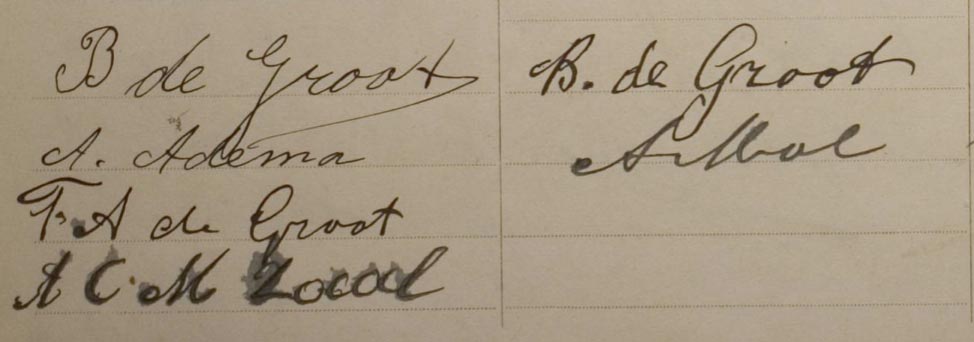 B de Groot
A. Adema
F. A de Groot
A C. M
B. de Groot
A. Mol